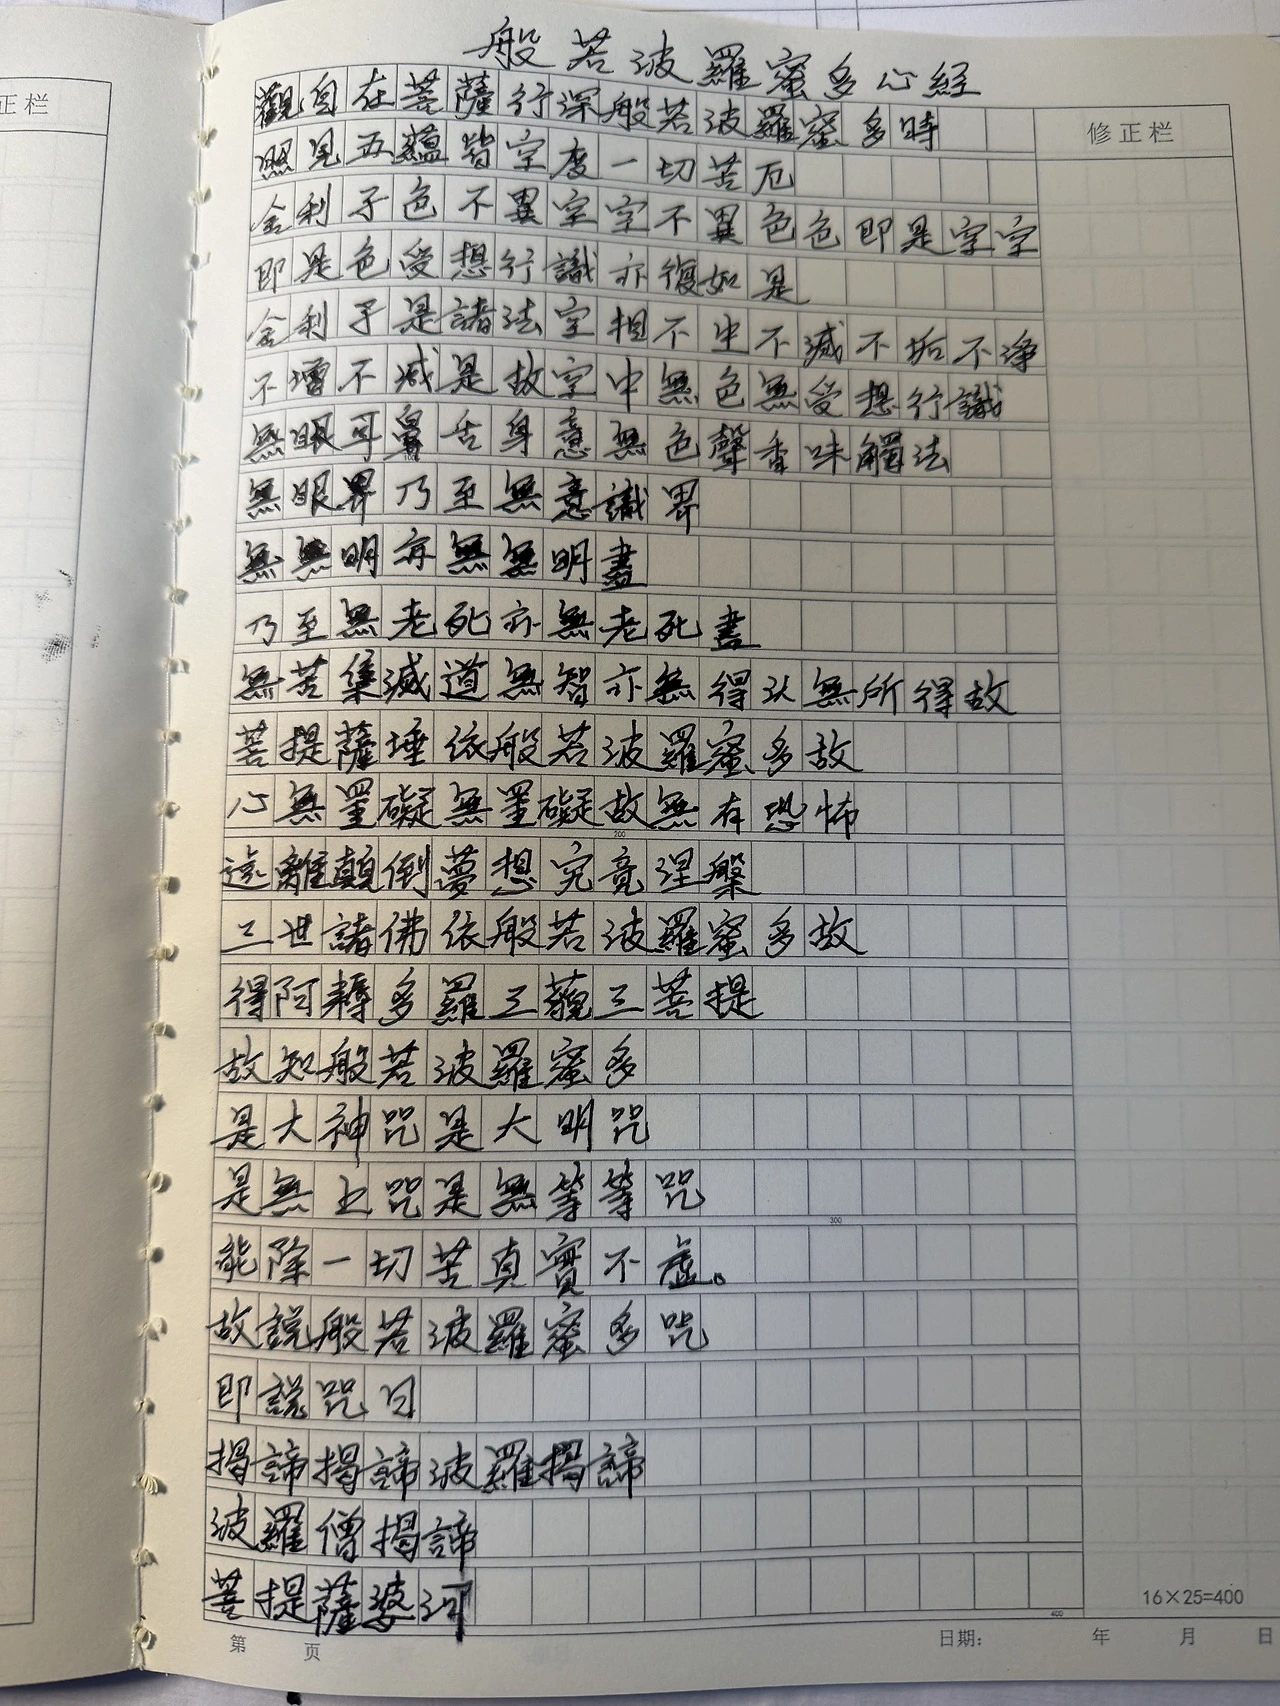 般若波羅蜜多心經
正栏
觀自在菩薩行深般若波羅蜜多時
修正栏
照見五蘊皆空度一切苦厄
舍利子色不異空空不異色色即是空空
即是色受想行識亦復如是
舍利子是諸法空相不生不滅不垢不淨
不增不减是故空中無色無受想行識
無眼耳鼻舌身意無色聲香味觸法
無眼界乃至無意識界
無無明亦無無明盡
乃至無老死亦無老死盡
無苦集滅道無智亦無得以無所得故
菩提薩埵依般若波羅蜜多故
心無罣礙無罣礙故無有恐怖
200
遠離顛倒夢想究竟涅槃
三世諸佛依般若波羅蜜多故
得阿耨多羅三藐三菩提
故知般若波羅蜜多
是大神咒是大明咒
是無上咒是無等等咒
300
能除一切苦真實不虛。
故説般若波羅蜜多咒
即説咒曰
揭諦揭諦波羅揭諦
波羅僧揭諦
菩提薩婆訶
16×25=400
400
第 页 日期： 年 月 日